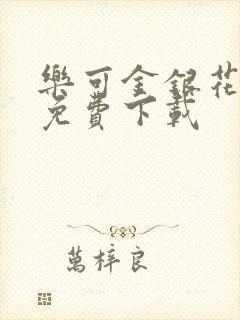 樂可金銀花
免費下載
萬梓良